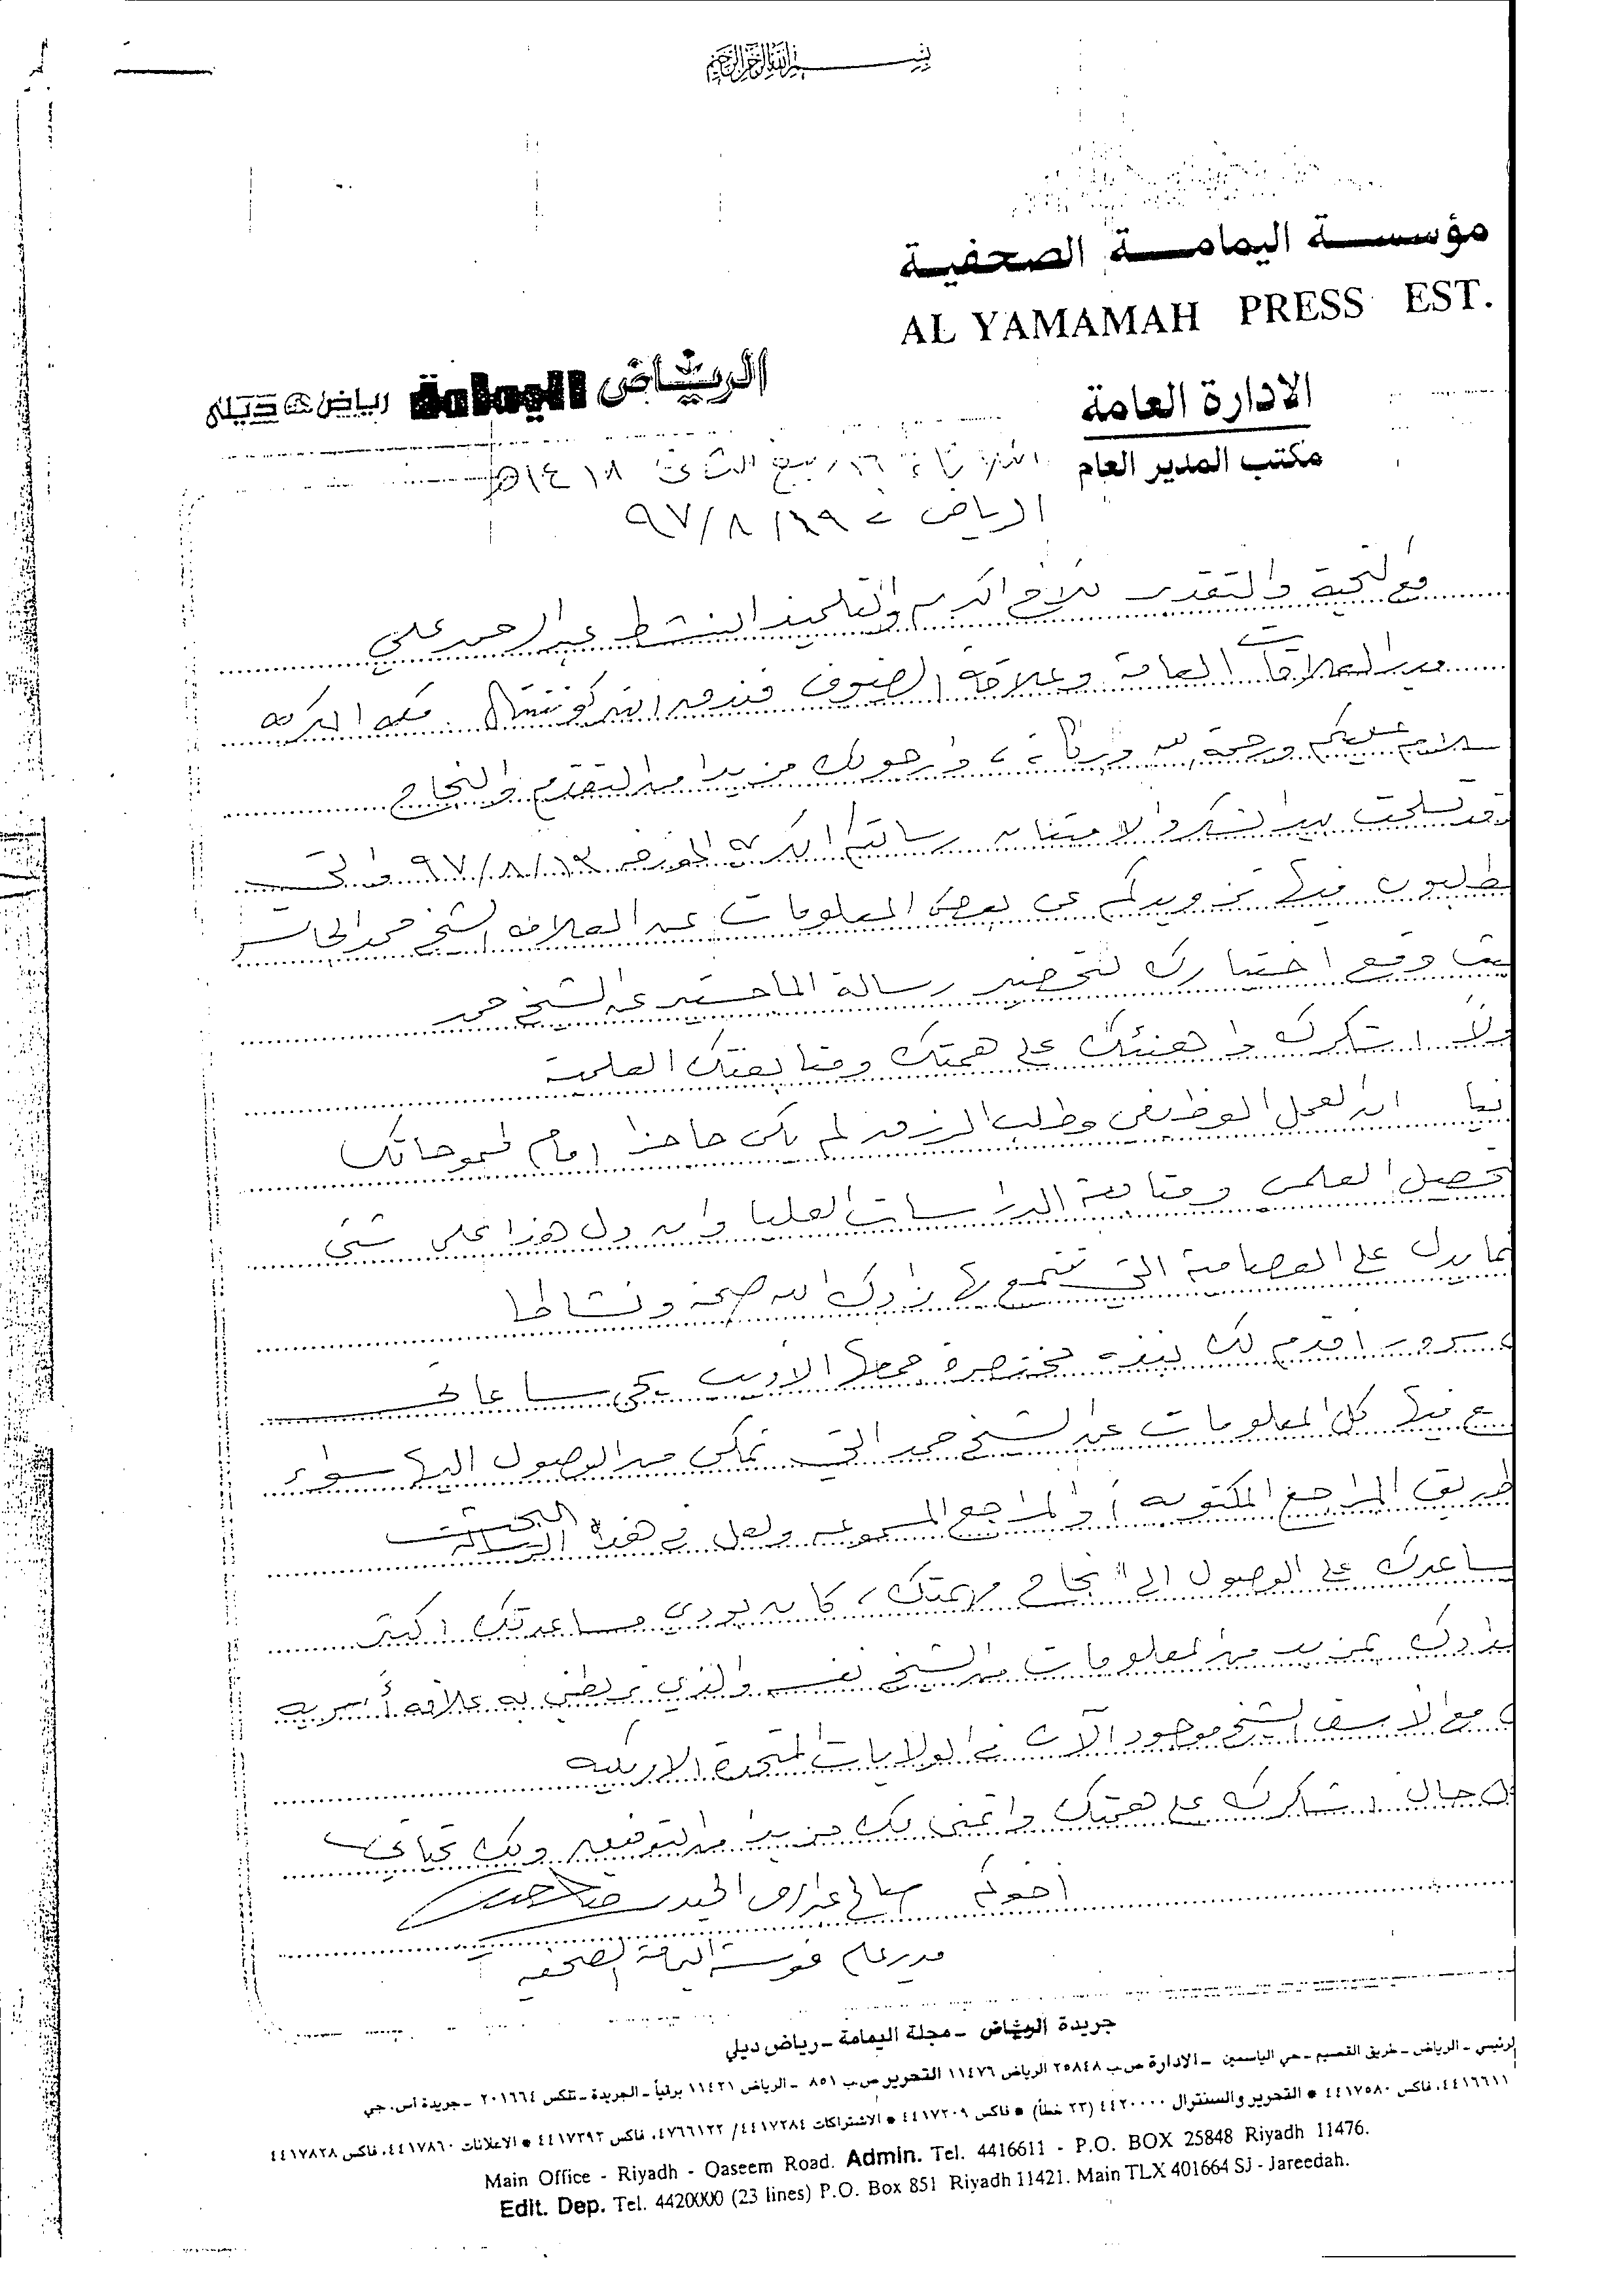 بسم الله الرحمن الرحيم
مؤسسة اليمامة الصحفية
AL YAMAMAH PRESS EST.
الرياض اليمامة رياض ديلي
الادارة العامة
مكتب المدير العام
الثلاثاء ١٦ ربيع الثاني ١٤١٨هـ
الرياض ١٩/٨/٩٧
مع التحية والتقدير للأخ الكريم والتلميذ النشط عبد الرحمن علي
مدير العلاقات العامة وعلاقة الضيوف فندق انتركونتننتال مكه المكرمه
سلام عليكم ورحمة الله وبركاته، وارجو لك مزيدا من التقدم والنجاح
وقد تسلمت بيد الشكر والامتنان رسالتكم الكريمه المؤرخه ١٣/٨/٩٧ والتي
تطلبون فيها تزويدكم عن بعض المعلومات عن العلامه الشيخ حمد الجاسر
حيث وقع اختيارك لتحضير رسالة الماجستير عن الشيخ حمد
اولاً اشكرك واهنئك على همتك ومتابعتك العلمية
ثانيا ان العمل الوظيفي وطلب الرزق لم يكن حاجزا امام طموحاتك
تحصيل العلمي ومتابعة الدراسات العليا وان دل هذا على شئ
انما يدل على العصامية التي تتمتع بها زادك الله صحة ونشاطا
سرور اقدم لك نبذه مختصرة جمعها الأديب يحي ساعاتي
جمع فيها كل المعلومات عن الشيخ حمد التي تمكن من الوصول اليها سواء
طريق المراجع المكتوبه أو المراجع المسموعه ولعل في هذا البحث
يساعدك على الوصول الى نجاح مهمتك، كان بودي مساعدتك اكثر
بمزيد من المعلومات من الشيخ نفسه والذي تربطني به علاقه أسريه
مع الاسف الشيخ موجود الآن في الولايات المتحدة الامريكيه
حال اشكرك على همتك واتمنى لك مزيدا من التوفيق ولك تحياتي
اخوكم
مدير عام مؤسسة اليمامة الصحفيه
جريدة الرياض - مجلة اليمامة - رياض ديلي
الرئيسي - الرياض - طريق القصيم - حي الياسمين - الادارة ص.ب ٢٥٨٤٨ الرياض ١١٤٧٦ التحرير ص.ب ٨٥١ - الرياض ١١٤٢١ برقياً - الجريدة - تلكس ٢٠١٦٦٤ - جريدة اس. جي
٤٤١٦٦١١، فاكس ٤٤١٧٥٨٠ * التحرير والسنترال ٤٤٢٠٠٠٠ (٢٣ خطاً) * فاكس ٤٤١٧٢٠٩ * الاشتراكات ٤٤١٧٢٨٤/ ٤٧٦٦١٢٢، فاكس ٤٤١٧٢٩٢ * الاعلانات ٤٤١٧٨٦٠، فاكس ٤٤١٧٨٢٨
Main Office - Riyadh - Qaseem Road. Admin. Tel. 4416611 - P.O. BOX 25848 Riyadh 11476.
Edit. Dep. Tel. 4420000 (23 lines) P.O. Box 851 Riyadh 11421. Main TLX 401664 SJ - Jareedah.